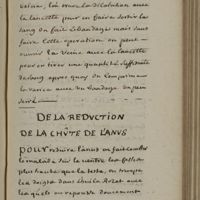 la lancette pour en faire sortir le
sang on fait le bandage mais sans
faire cette operation on peut
ouvrir la veine avec la lancette
pour en tirer une quantité suffisante
de sang apres quoy on comprimera
la varice avec un bandage un peu
serré
DE LA REDUCTION
DE LA CHÛTE DE L'ANUS
POUR reduire l'anus on fait coucher
le malade sur le ventre les fesses
plus hautes que la teste, on trempe
les doigts dans l'huile Rozat avec
lesquels on repousse doucement